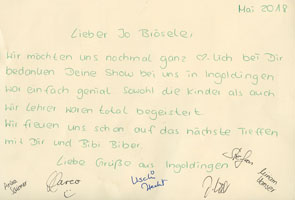 Mai 2018
Lieber Jo Brösele,
wir möchten uns nochmal ganz ♡lich bei Dir
bedanken Deine Show bei uns in Ingoldingen
war einfach genial Sowohl die Kinder als auch
wir Lehrer waren total begeistert.
Wir freuen uns schon auf das nächste Treffen
mit Dir und Bibi Biber.
Liebe Grüße aus Ingoldingen
Marco
Uschi
Miriam